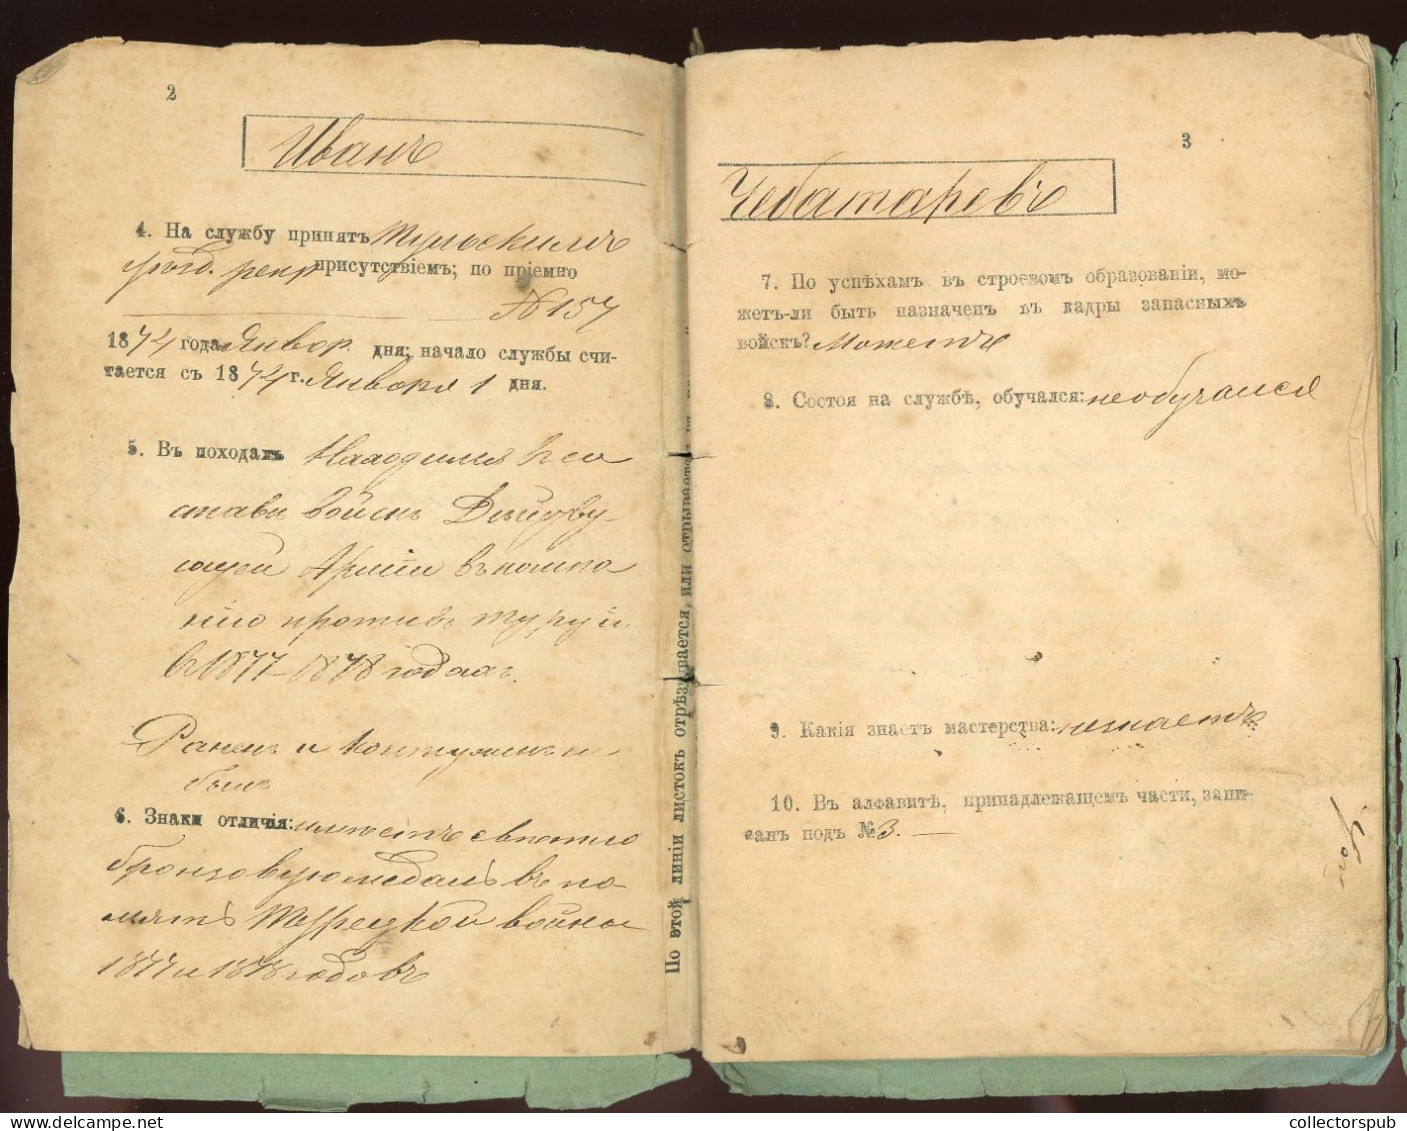 2
Иванъ
4. На службу принятъ Тульскимъ
уѣзд. рекр присутствіемъ; по пріемно
№ 157
1874 года Январ. дня; начало службы счи-
тается съ 1874 г. Января 1 дня.
5. Въ походахъ Находился въ со
ставѣ войскъ Дѣйству-
ющей Арміи въ кампа
нію противъ турціи
въ 1877–1878 годахъ.
Раненъ и контуженъ не
былъ
6. Знаки отличія: имѣетъ свѣтло
бронзовую медаль въ па
мять Турецкой войны
1877 и 1878 годовъ
По этой линіи листокъ отрѣзывается, или отрывается
3
Чебатаревъ
7. По успѣхамъ въ строевомъ образованіи, мо-
жетъ-ли быть назначенъ въ кадры запасныхъ
войскъ? Можетъ
8. Состоя на службѣ, обучался: необучался
9. Какія знаетъ мастерства: незнаетъ
10. Въ алфавитѣ, принадлежащемъ части, запи-
санъ подъ № 3. —
collectorspub.com